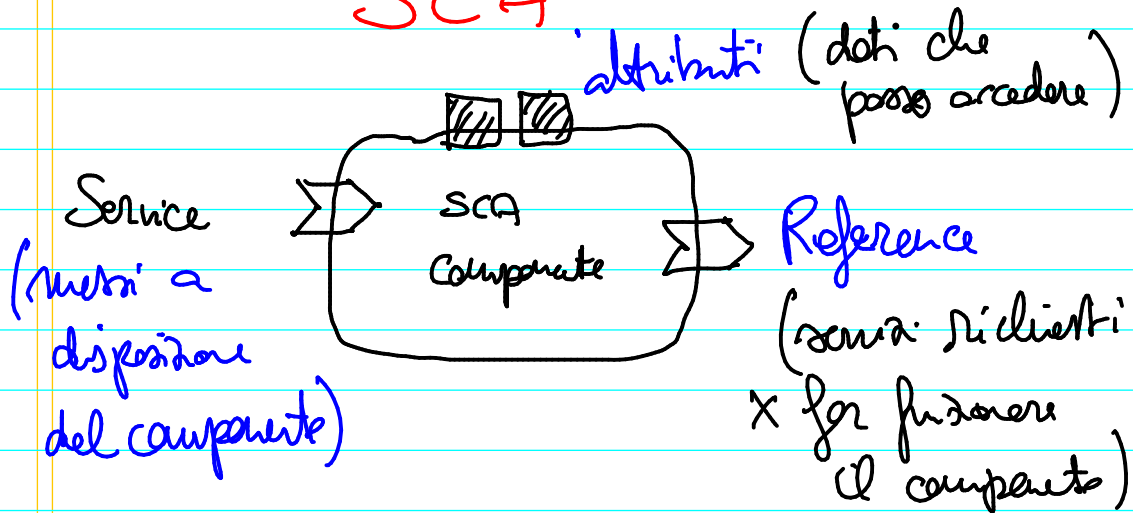 SCA
attributi (dati che
posso accedere)
Service
(messi a
disposizione
del componente)
SCA
componente
Reference
(servizi richiesti
x far funzionare
il componente)